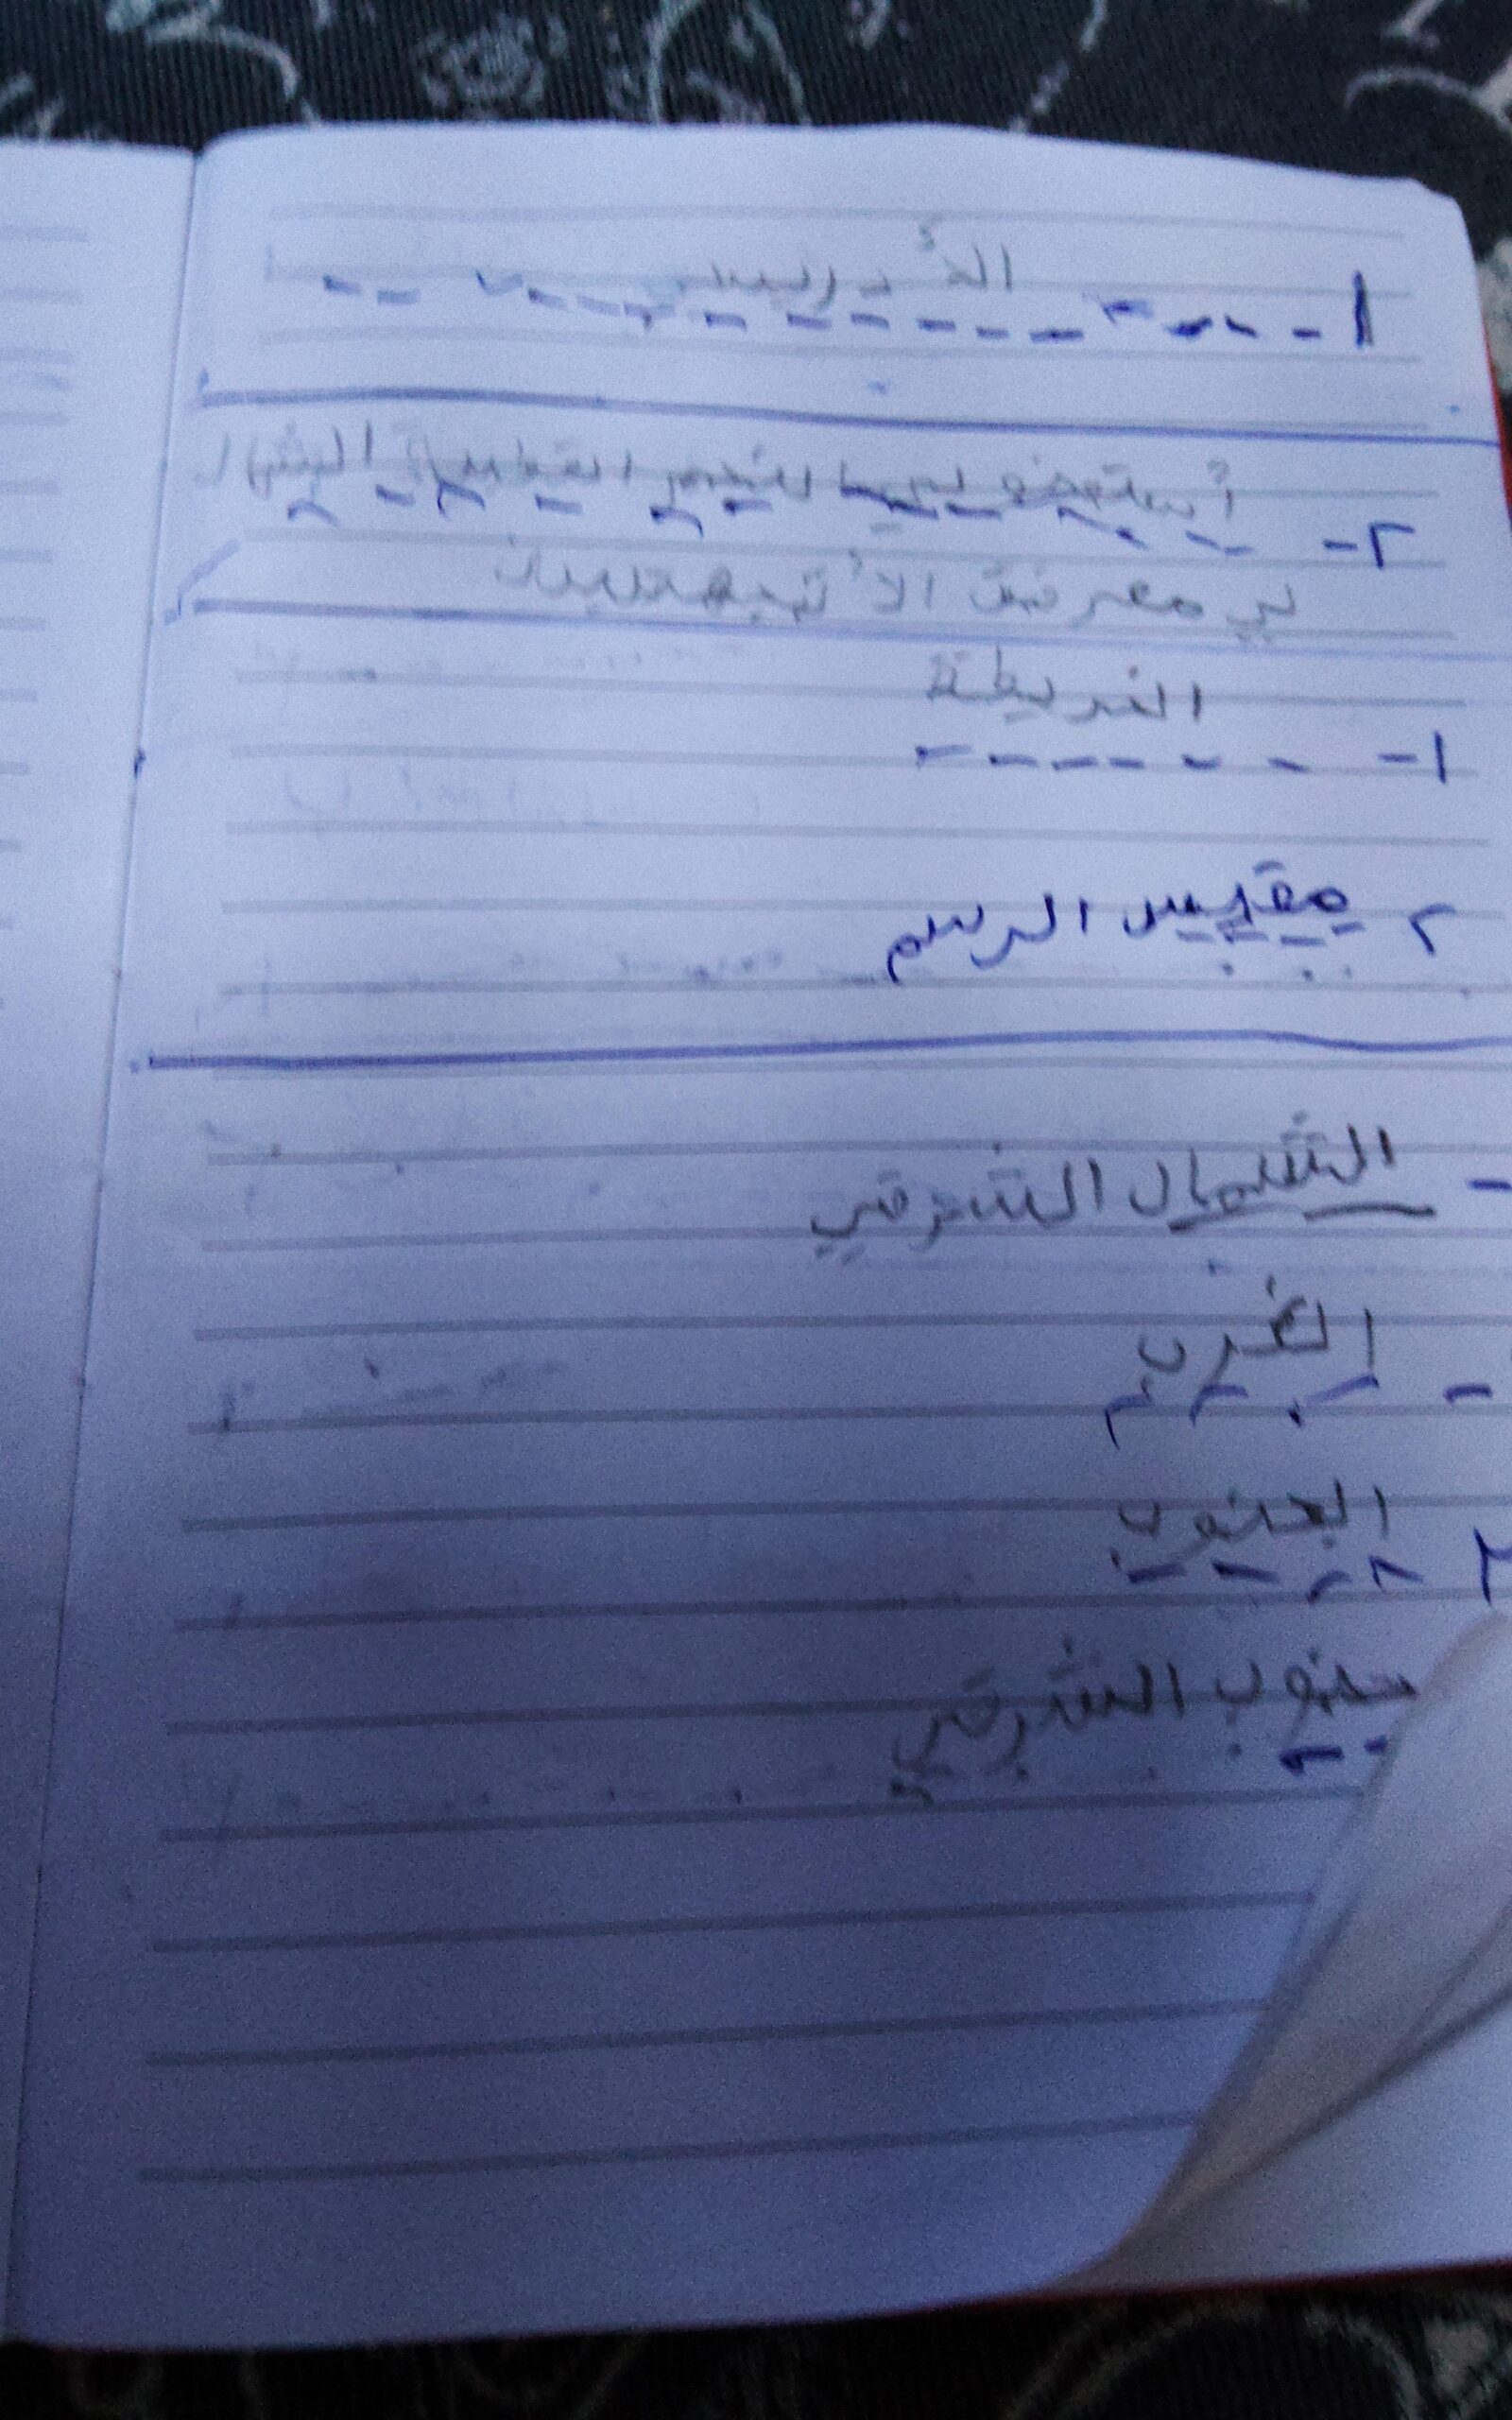 ١- الأدريسي
٢- أستعين بها للنجم القطبي الشمال
في معرفة الأتجهات
١- الخريطة
٢ مقيس الرسم
- الشمال الشرقي
- الغرب
٣ الجنوب
جنوب الشرقي